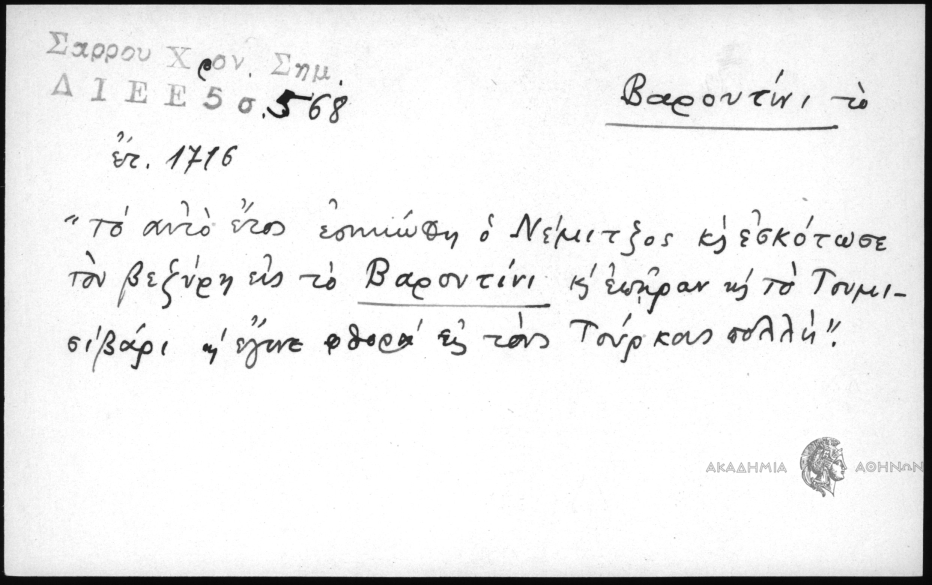 Σαρρου Χρον. Σημ.
Δ Ι Ε Ε 5 σ. 568
Βαρουτίνι τὸ
ἔτ. 1716
"τὸ αὐτὸ ἔτος ἐσηκώθη ὁ Νέμιτζος κ̀ ἐσκότωσε
τὸν βεζύρη εἰς τὸ Βαρουτίνι κ̀ ἐπῆραν κ̀ τὸ Τουμι-
σιβάρι κ̀ ἔγινε φθορά εἰς τοὺς Τούρκους πολλή".
ΑΚΑΔΗΜΙΑ ΑΘΗΝΩΝ